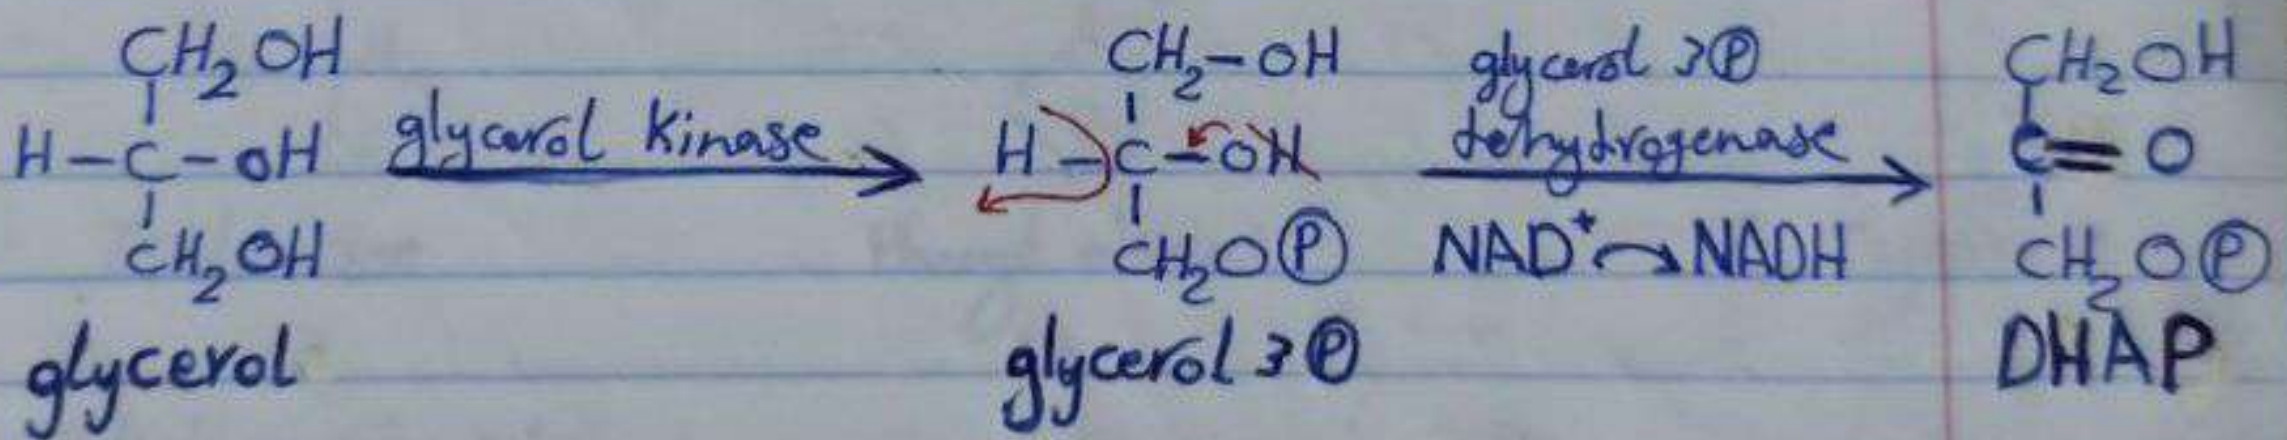 CH₂OH
H-C-OH
CH₂OH
glycerol
glycerol kinase
CH₂-OH
H-C-OH
CH₂OⓅ
glycerol 3Ⓟ
glycerol 3Ⓟ
dehydrogenase
NAD⁺ → NADH
CH₂OH
C=O
CH₂OⓅ
DHAP